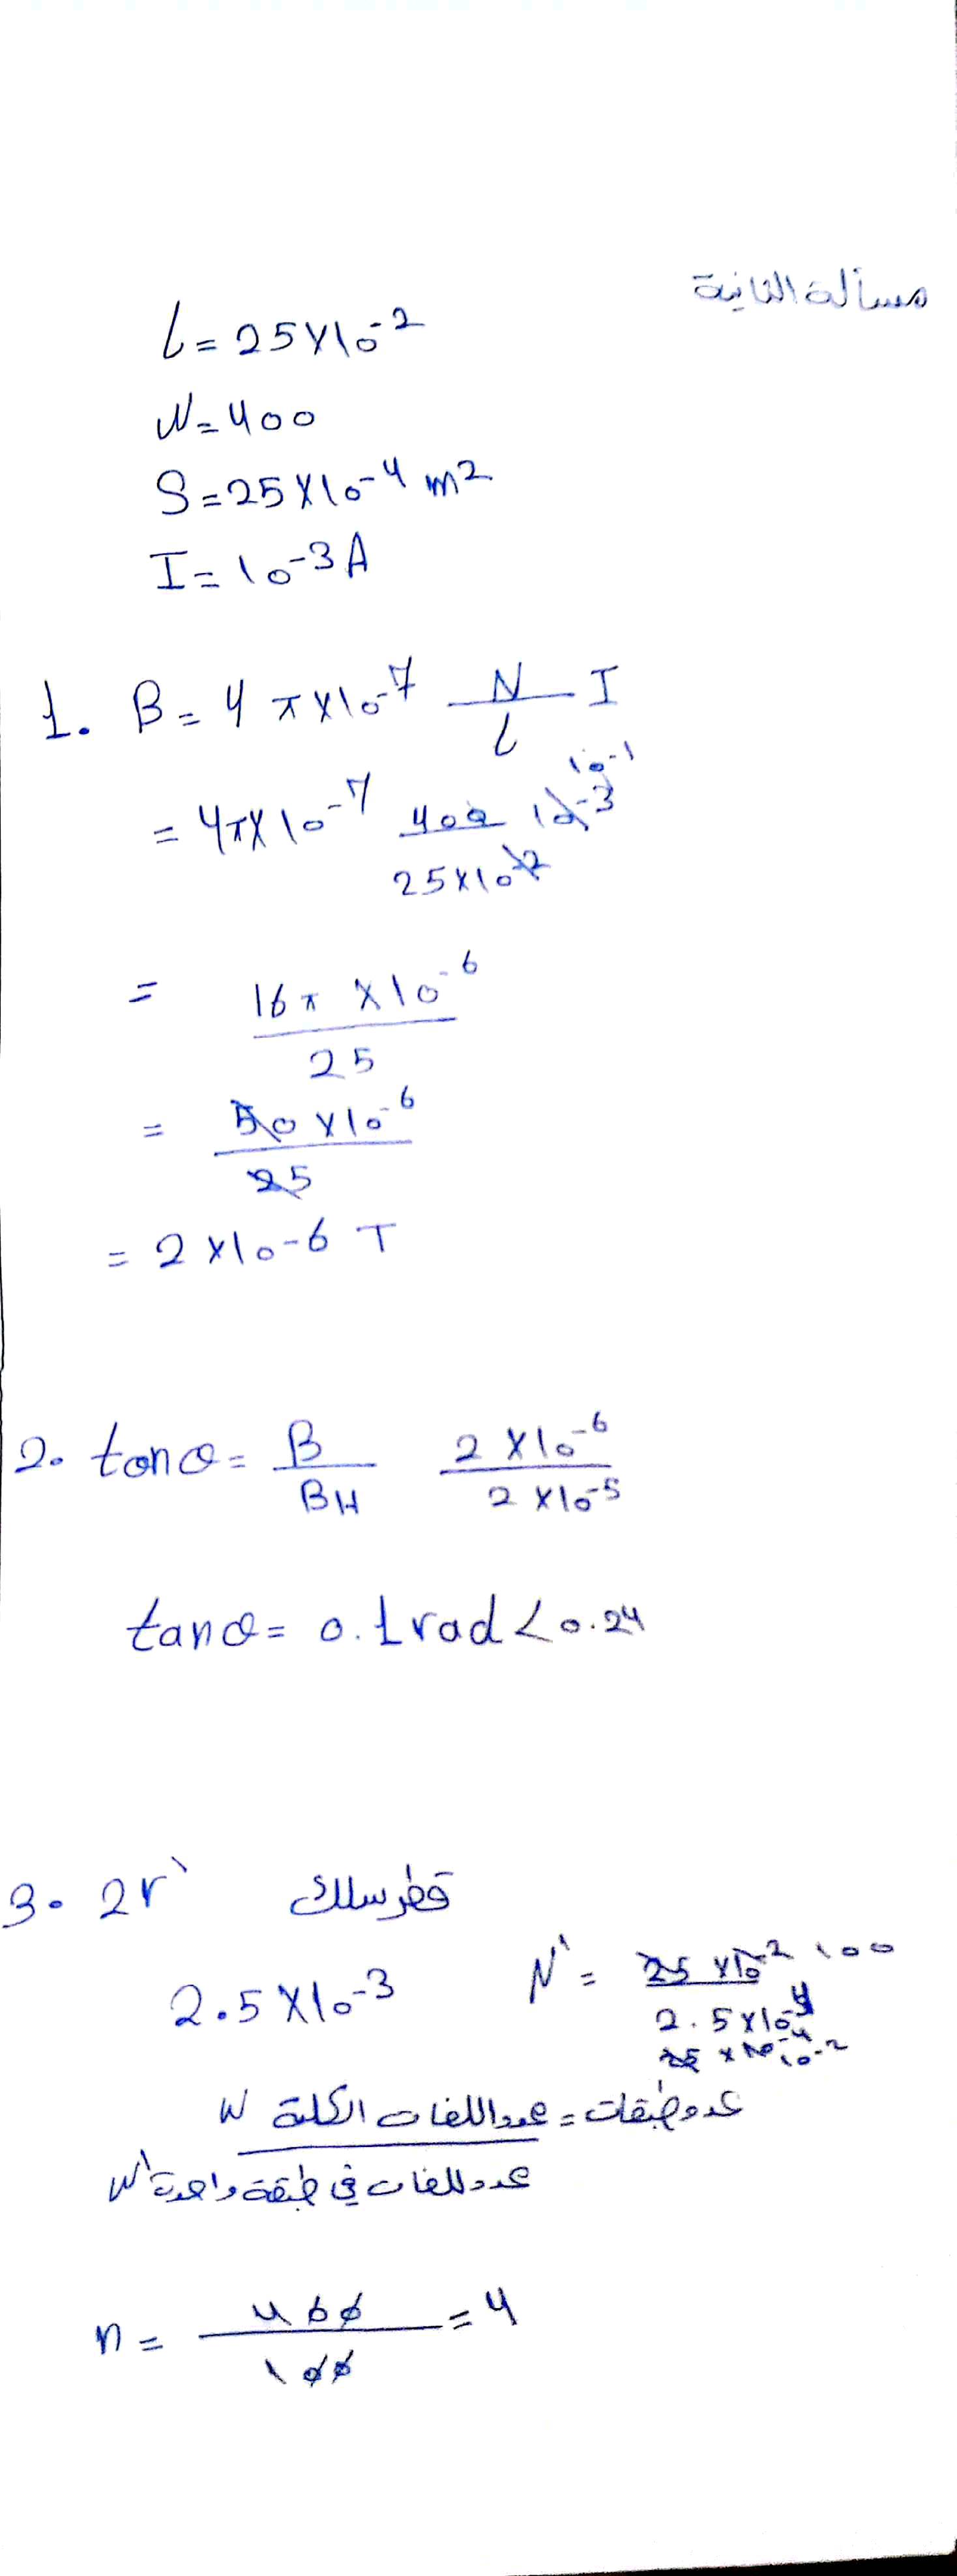 مسألة الثانية
L = 25×10^-2
N = 400
S = 25×10^-4 m2
I = 10^-3 A
1. B = 4π×10^-7 N/L I
= 4π×10^-7 400/25×10^-2 10^-3 10^-1
= 16π×10^-6/25
= 50×10^-6/25
= 2×10^-6 T
2. tanθ = B/BH 2×10^-6/2×10^-5
tanθ = 0.1 rad < 0.24
3. 2r` قطر سلك
2.5×10^-3 N` = 25×10^-2/2.5×10^-3 100
عدد طبقات = عدد اللفات الكلية N
عدد لفات في طبقة واحدة N`
n = 400/100 = 4